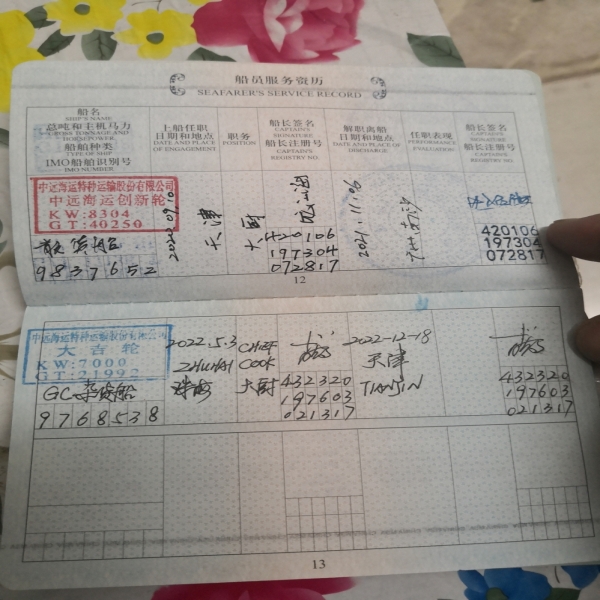 船员服务资历
SEAFARER'S SERVICE RECORD
船名
SHIP'S NAME
总吨和主机马力
GROSS TONNAGE AND HORSEPOWER
船舶种类
TYPE OF SHIP
IMO船舶识别号
IMO NUMBER
上船任职
日期和地点
DATE AND PLACE OF ENGAGEMENT
职务
POSITION
船长签名
CAPTAIN'S SIGNATURE
船长注册号
CAPTAIN'S REGISTRY NO.
解职离船
日期和地点
DATE AND PLACE OF DISCHARGE
任职表现
PERFORMANCE EVALUATION
船长签名
CAPTAIN'S SIGNATURE
船长注册号
CAPTAIN'S REGISTRY NO.
中远海运特种运输股份有限公司
中远海运创新轮
KW:8304
GT:40250
9837652
天津
大厨
420106
197304
072817
2021.11.06
广州南沙
420106
197304
072817
12
中远海运特种运输股份有限公司
大吉轮
KW:7000
GT:21992
GC 杂货船
9768538
2022.5.3
ZHUHAI
珠海
CHIEF
COOK
大厨
432320
197603
021317
2022-12-18
天津
TIANJIN
432320
197603
021317
13